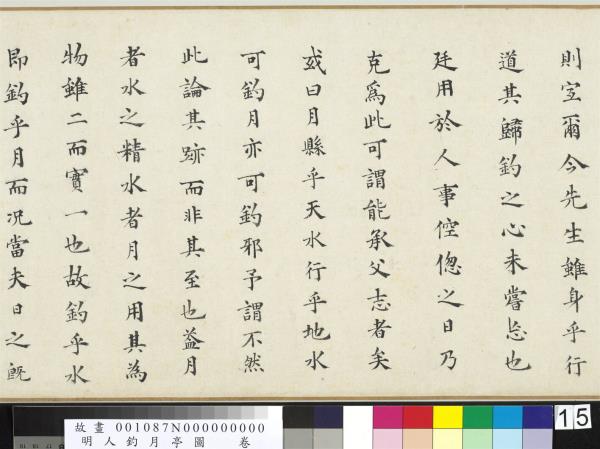 則宜爾今先生雖身乎行
道其歸釣之心未嘗忘也
廷用於人事倥傯之日乃
克為此可謂能承父志者矣
或曰月縣乎天水行乎地水
可釣月亦可釣邪予謂不然
此論其跡而非其至也蓋月
者水之精水者月之用其為
物雖二而實一也故釣乎水
即釣乎月而況當夫日之既
故畫 001087N000000000
明人釣月亭圖 卷
15